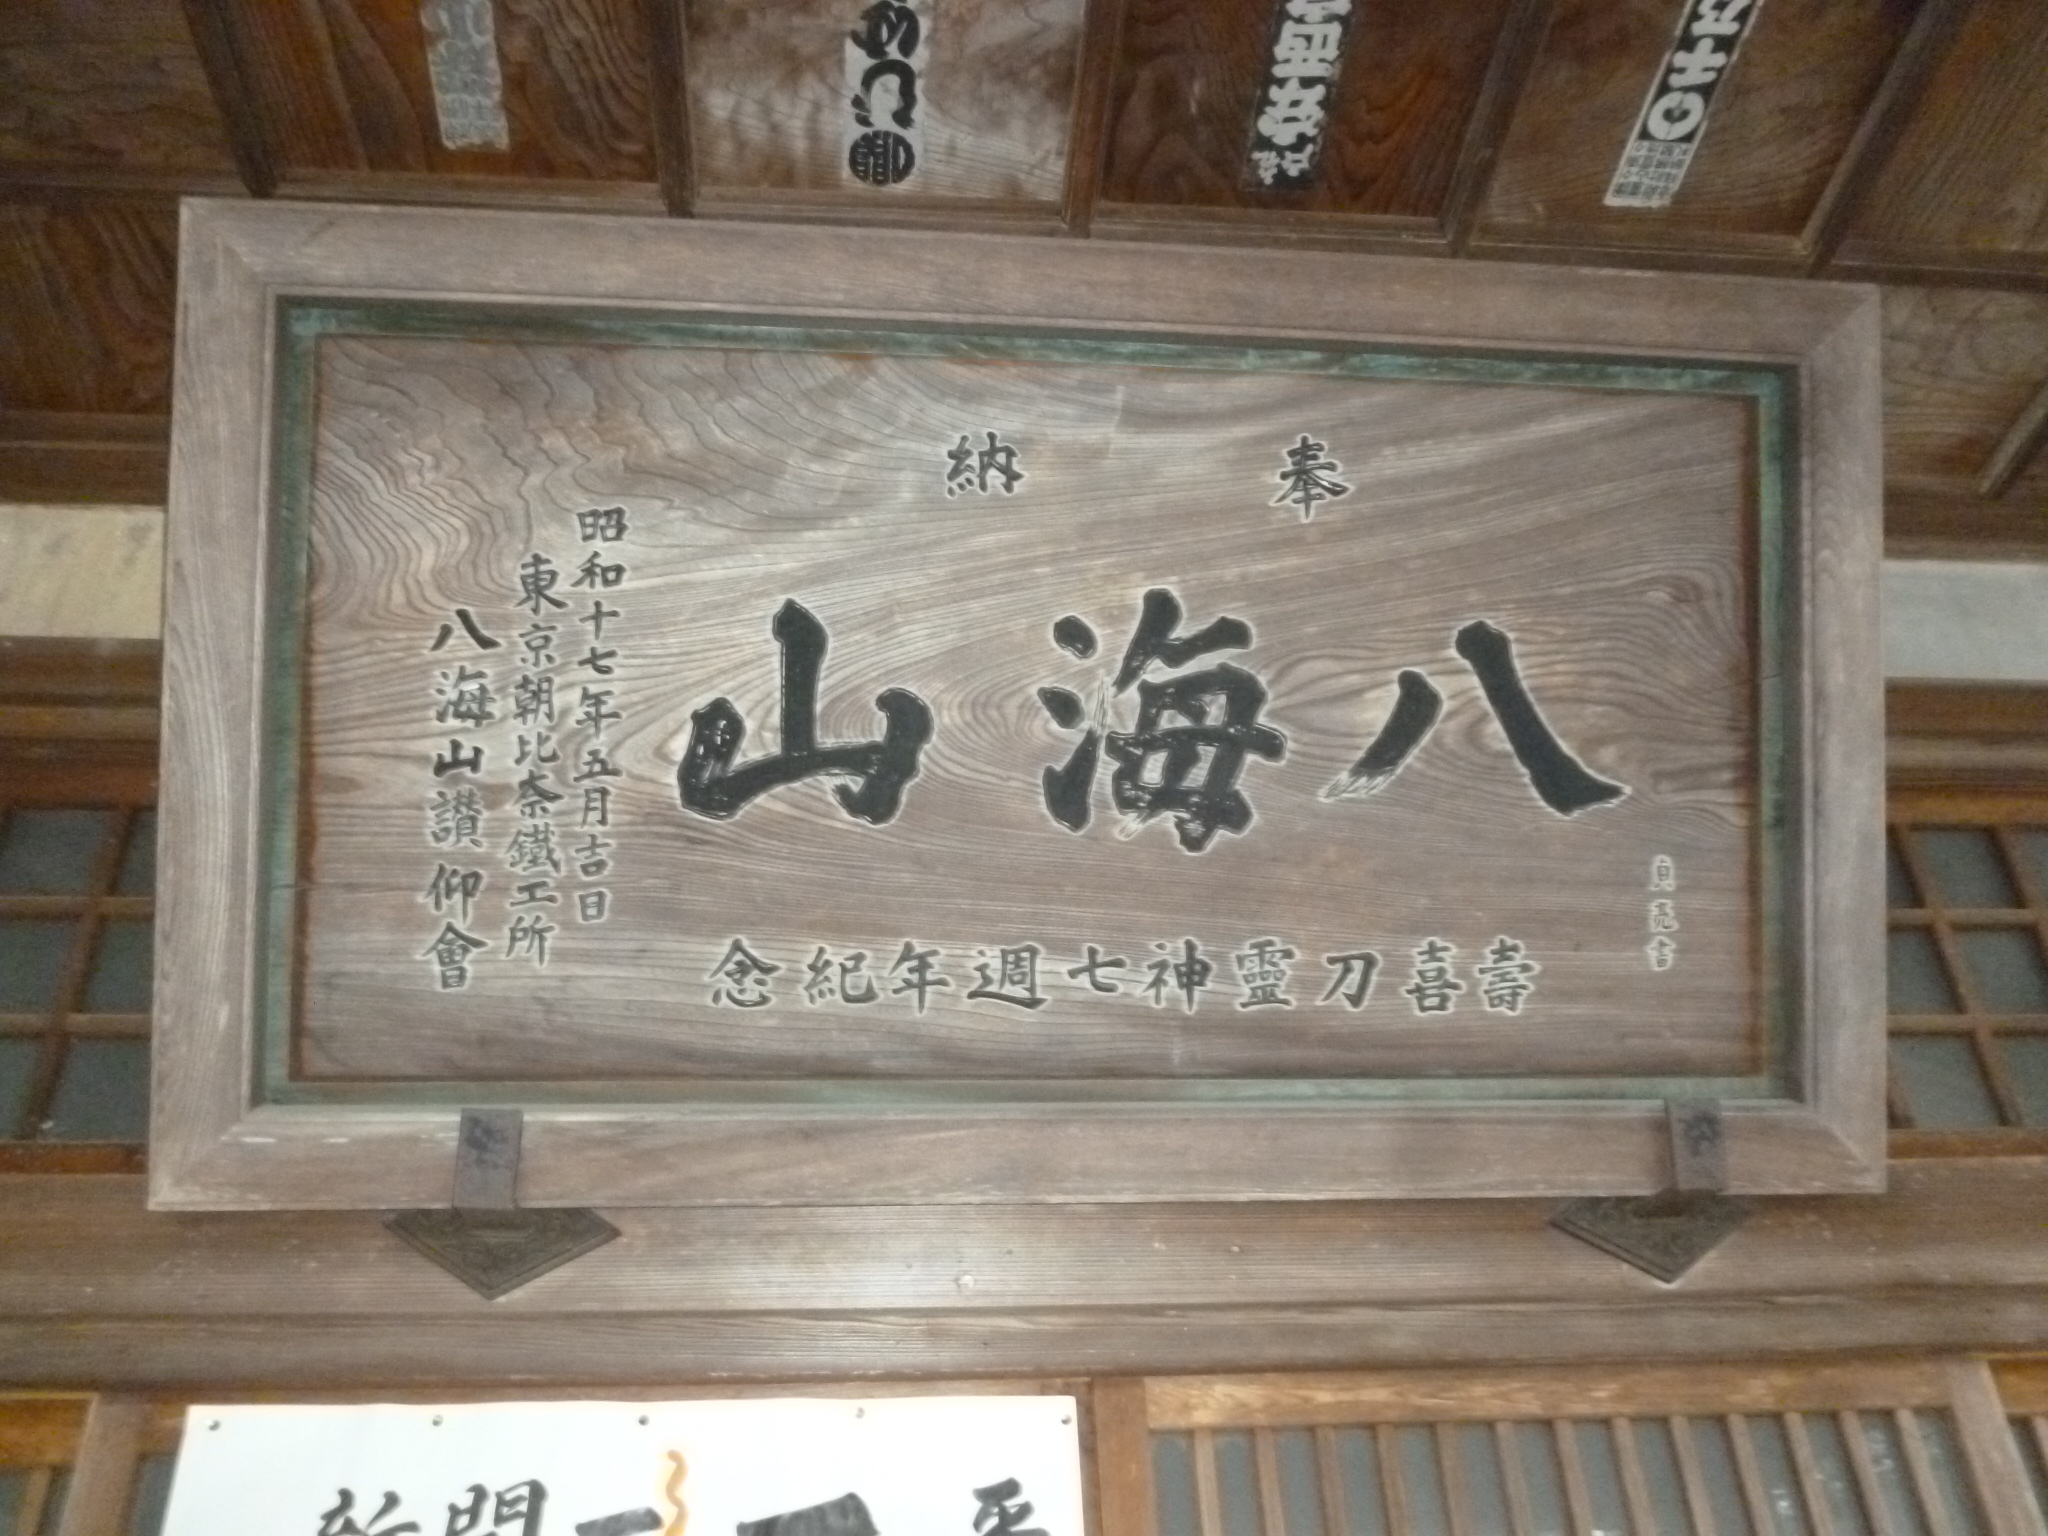 奉納
八海山
貞亮書
壽喜刀靈神七週年紀念
昭和十七年五月吉日
東京朝比奈鐵工所
八海山讃仰會